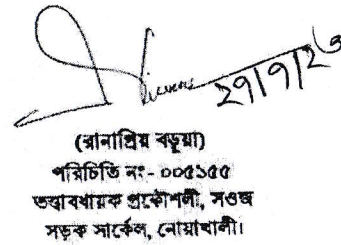 ২৭/৭/২৬
(রানাপ্রিয় বড়ুয়া)
পরিচিতি নং- ০০৫১৫৫
তত্ত্বাবধায়ক প্রকৌশলী, সওজ
সড়ক সার্কেল, নোয়াখালী।